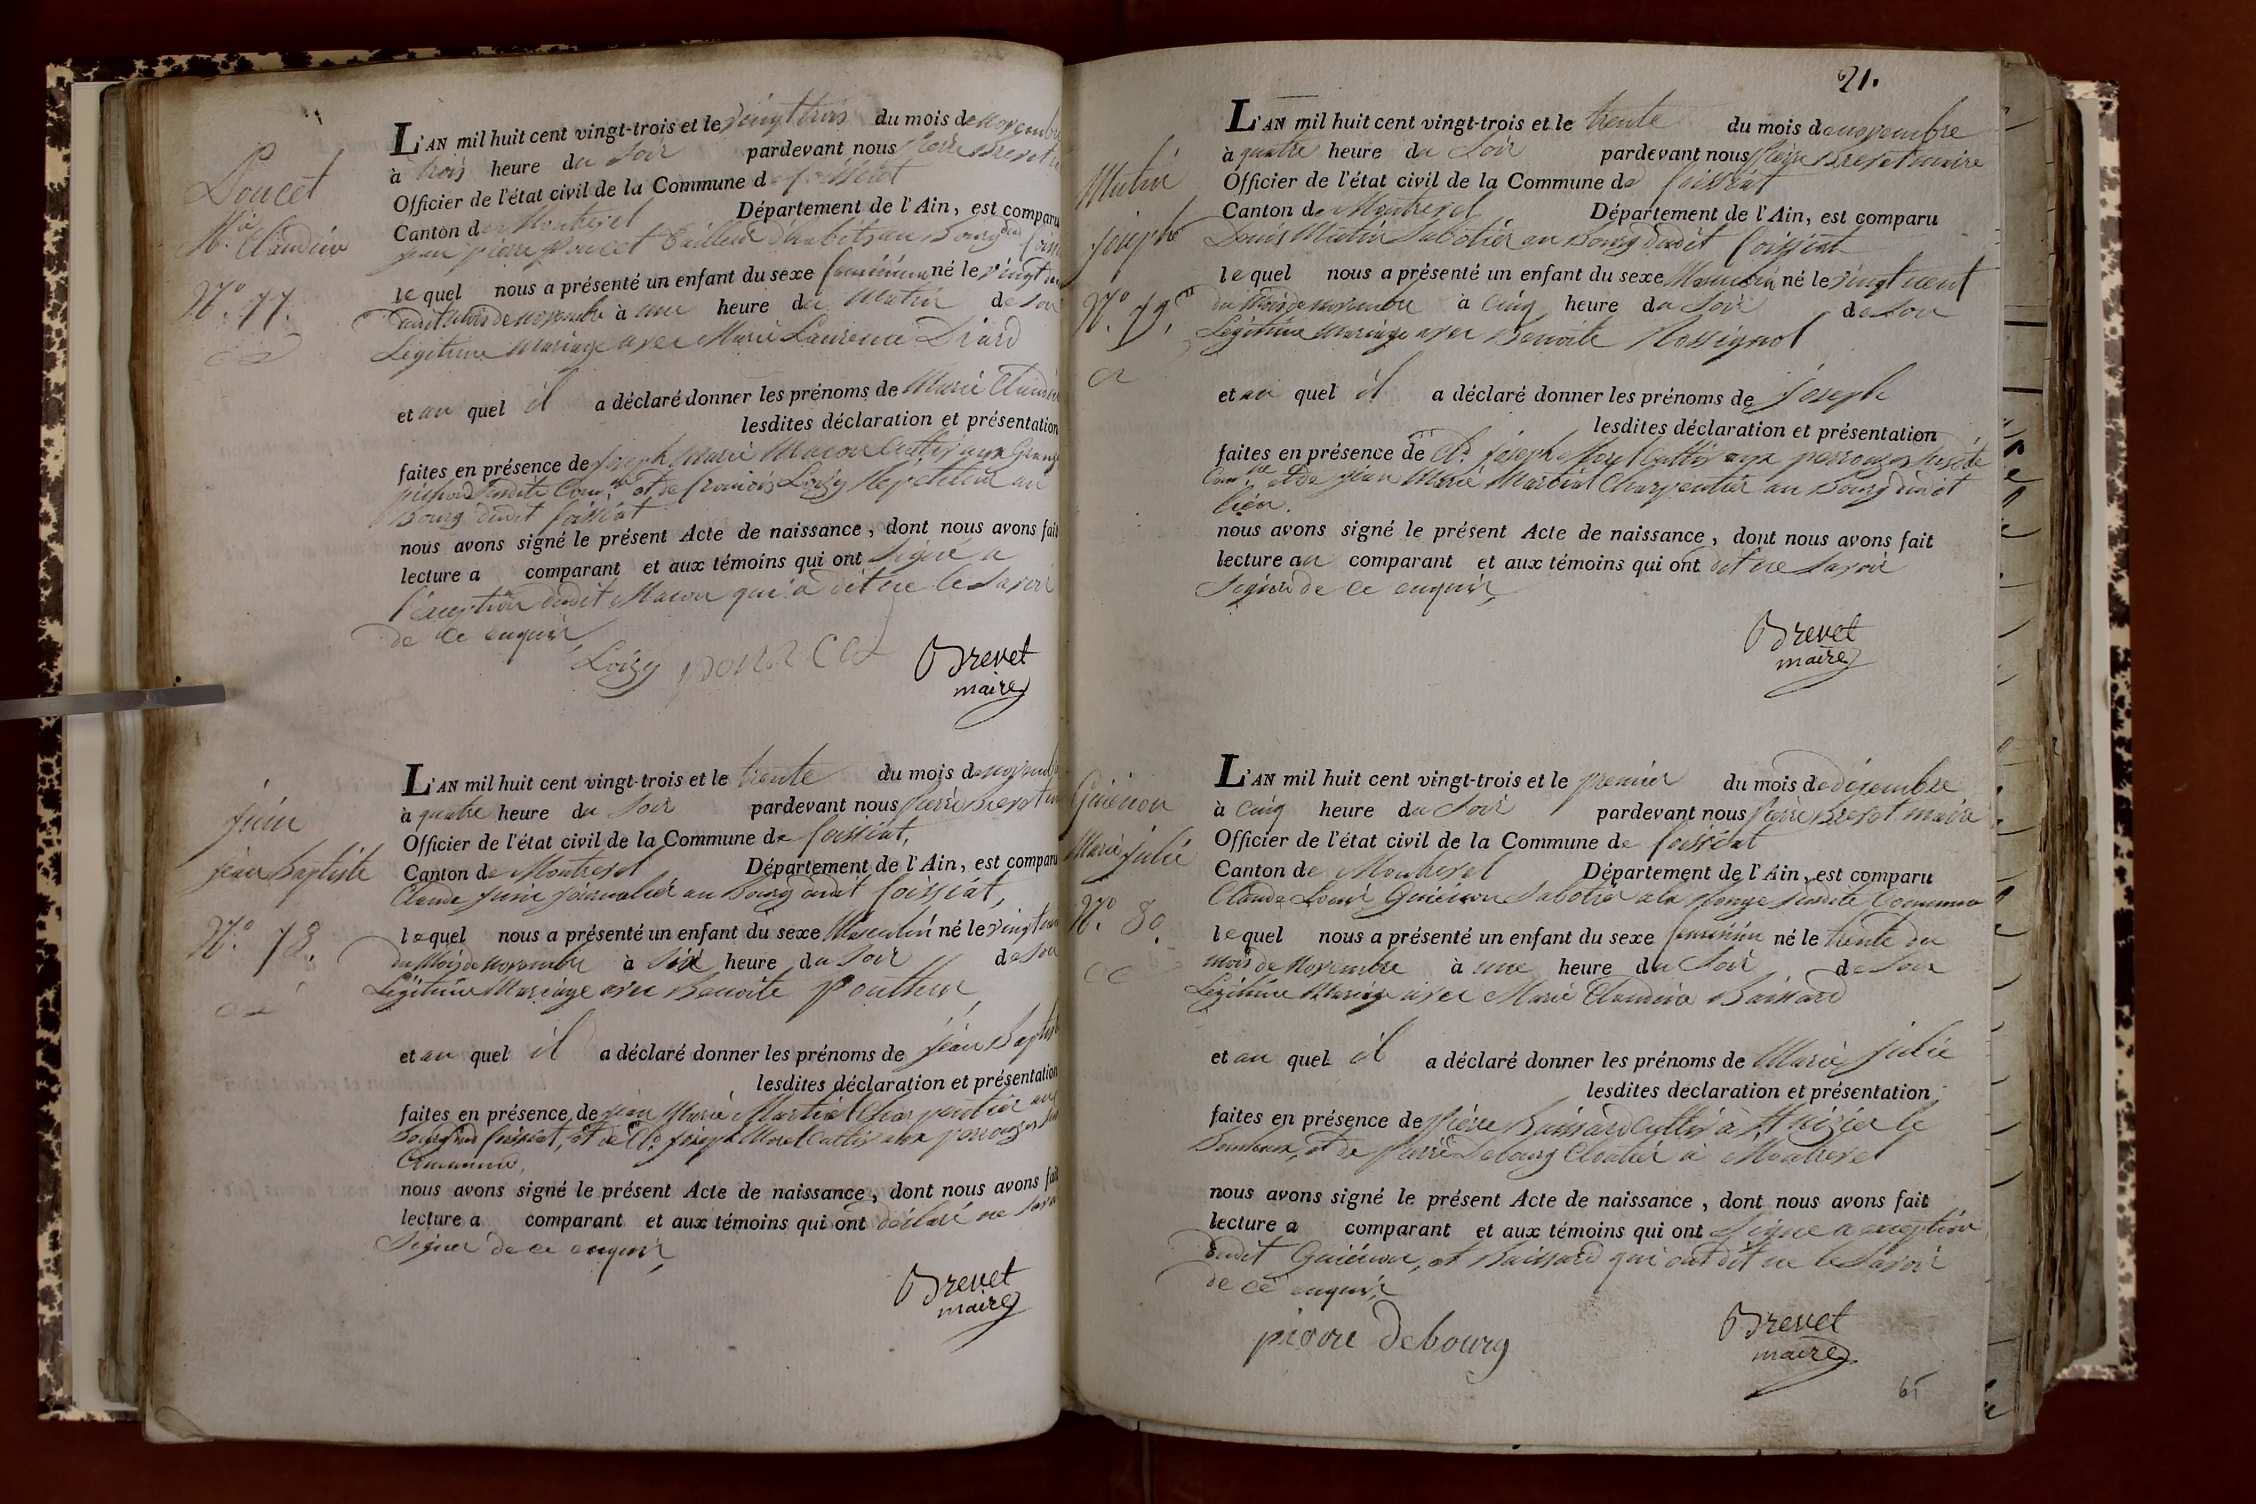 Poucet
M.ie Claudine
N.o 77.
L'AN mil huit cent vingt-trois et le vingt trois du mois de novembre
à trois heure du soir pardevant nous Pierre Brevet
Officier de l'état civil de la Commune de foissiat
Canton de Montrevel Département de l'Ain, est comparu
jean pierre Poucet tailleur d'habits au Bourg dud
lequel nous a présenté un enfant du sexe feminin né le vingt
dudit mois de novembre à une heure du Matin de son
Légitime mariage avec Marie Laurence Diard
et au quel il a déclaré donner les prénoms de Marie Claudine
lesdites déclaration et présentation
faites en présence de joseph Marie Macon Cultiv aux Granges
pichoud susdite Com.ne et de francois Loizy Répétiteur au
Bourg dudit foissiat
nous avons signé le présent Acte de naissance, dont nous avons fait
lecture a comparant et aux témoins qui ont signé a
l'exception dudit Macon qui a dit ne le savoir
de ce enquis,
Loizy poucet Brevet
maire
juin
jean Baptiste
N.o 78.
L'AN mil huit cent vingt-trois et le trente du mois de novembre
à quatre heure du soir pardevant nous Pierre Brevet
Officier de l'état civil de la Commune de foissiat,
Canton de Montrevel Département de l'Ain, est comparu
Claude juin journalier au Bourg dudit foissiat,
lequel nous a présenté un enfant du sexe Masculin né le vingt
du Mois de novembre à six heure du soir de son
Légitime Mariage avec Benoite Pouthieu
et au quel il a déclaré donner les prénoms de jean Baptiste
lesdites déclaration et présentation
faites en présence de jean Marie Martial Charpentier au
Bourg dud foissiat, et de Cl.d joseph Morel Cultiv aux perrouzes
Commune,
nous avons signé le présent Acte de naissance, dont nous avons fait
lecture a comparant et aux témoins qui ont déclaré ne savoir
signer de ce enquis,
Brevet
maire
21.
Mutin
joseph
N.o 79.
L'AN mil huit cent vingt-trois et le trente du mois de novembre
à quatre heure du soir pardevant nous Pierre Brevet maire
Officier de l'état civil de la Commune de foissiat
Canton de Montrevel Département de l'Ain, est comparu
Louis Mutin Sabotier au Bourg dudit foissiat
lequel nous a présenté un enfant du sexe Masculin né le vingt neuf
du Mois de novembre à cinq heure du soir de son
Légitime mariage avec Benoite Rossignol
et au quel il a déclaré donner les prénoms de joseph
lesdites déclaration et présentation
faites en présence de Cl.d joseph Morel Cultiv aux perrouzes susdite
Com.ne et de jean Marie Martial Charpentier au Bourg dudit
lieu.
nous avons signé le présent Acte de naissance, dont nous avons fait
lecture au comparant et aux témoins qui ont dit ne savoir
signer de ce enquis,
Brevet
maire
Guienon
Marie julie
N.o 80.
L'AN mil huit cent vingt-trois et le premier du mois de décembre
à cinq heure du soir pardevant nous Pierre Brevet maire
Officier de l'état civil de la Commune de foissiat
Canton de Montrevel Département de l'Ain, est comparu
Claude Louis Guienon Sabotier a la susdite Commune
lequel nous a présenté un enfant du sexe feminin né le trente du
mois de Novembre à une heure du soir de son
Légitime Mariage avec Marie Claudine Baissard
et au quel il a déclaré donner les prénoms de Marie julie
lesdites déclaration et présentation
faites en présence de Pierre Baissard Cultiv à St Nizier le
Bouchoux, et de Pierre Debourg Cloutier à Montrevel
nous avons signé le présent Acte de naissance, dont nous avons fait
lecture a comparant et aux témoins qui ont signé a exception
dudit Guienon, et Baissard qui ont dit ne le savoir
de ce enquis,
pierre Debourg Brevet
maire
65